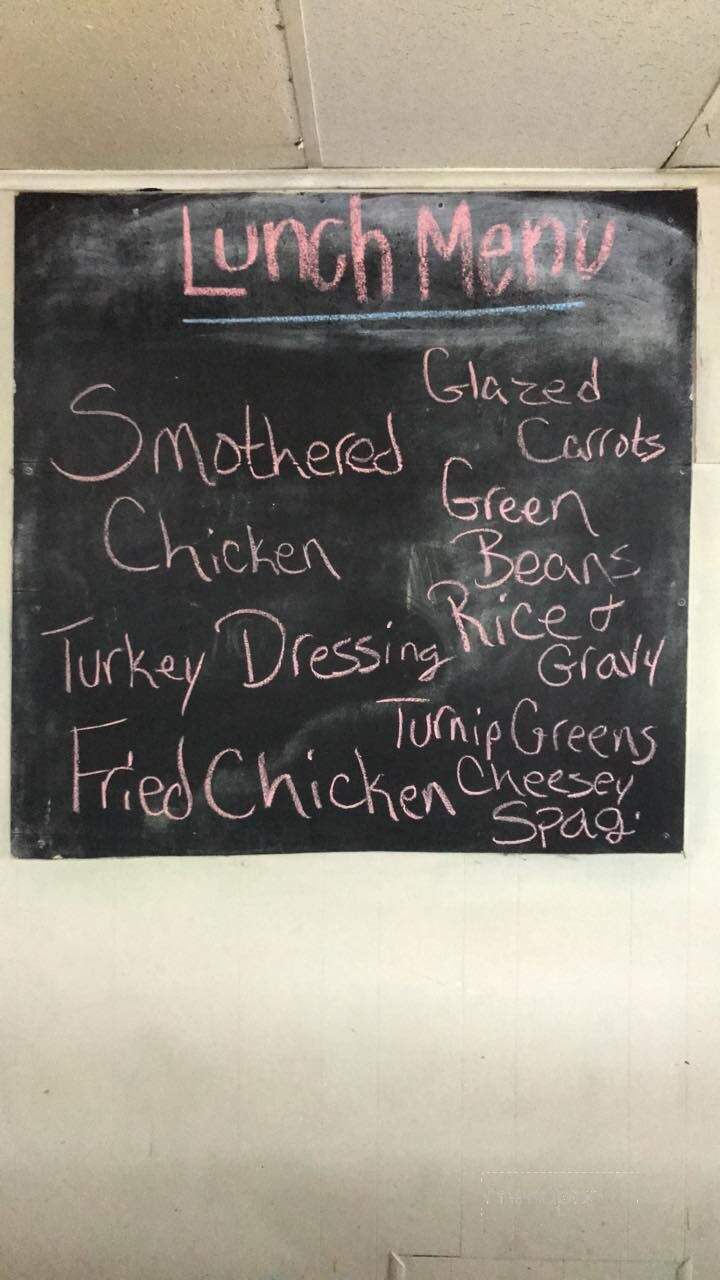 Lunch Menu
Smothered
Chicken
Turkey Dressing
Fried Chicken
Glazed
Carrots
Green
Beans
Rice &
Gravy
Turnip Greens
Cheesey
Spag.